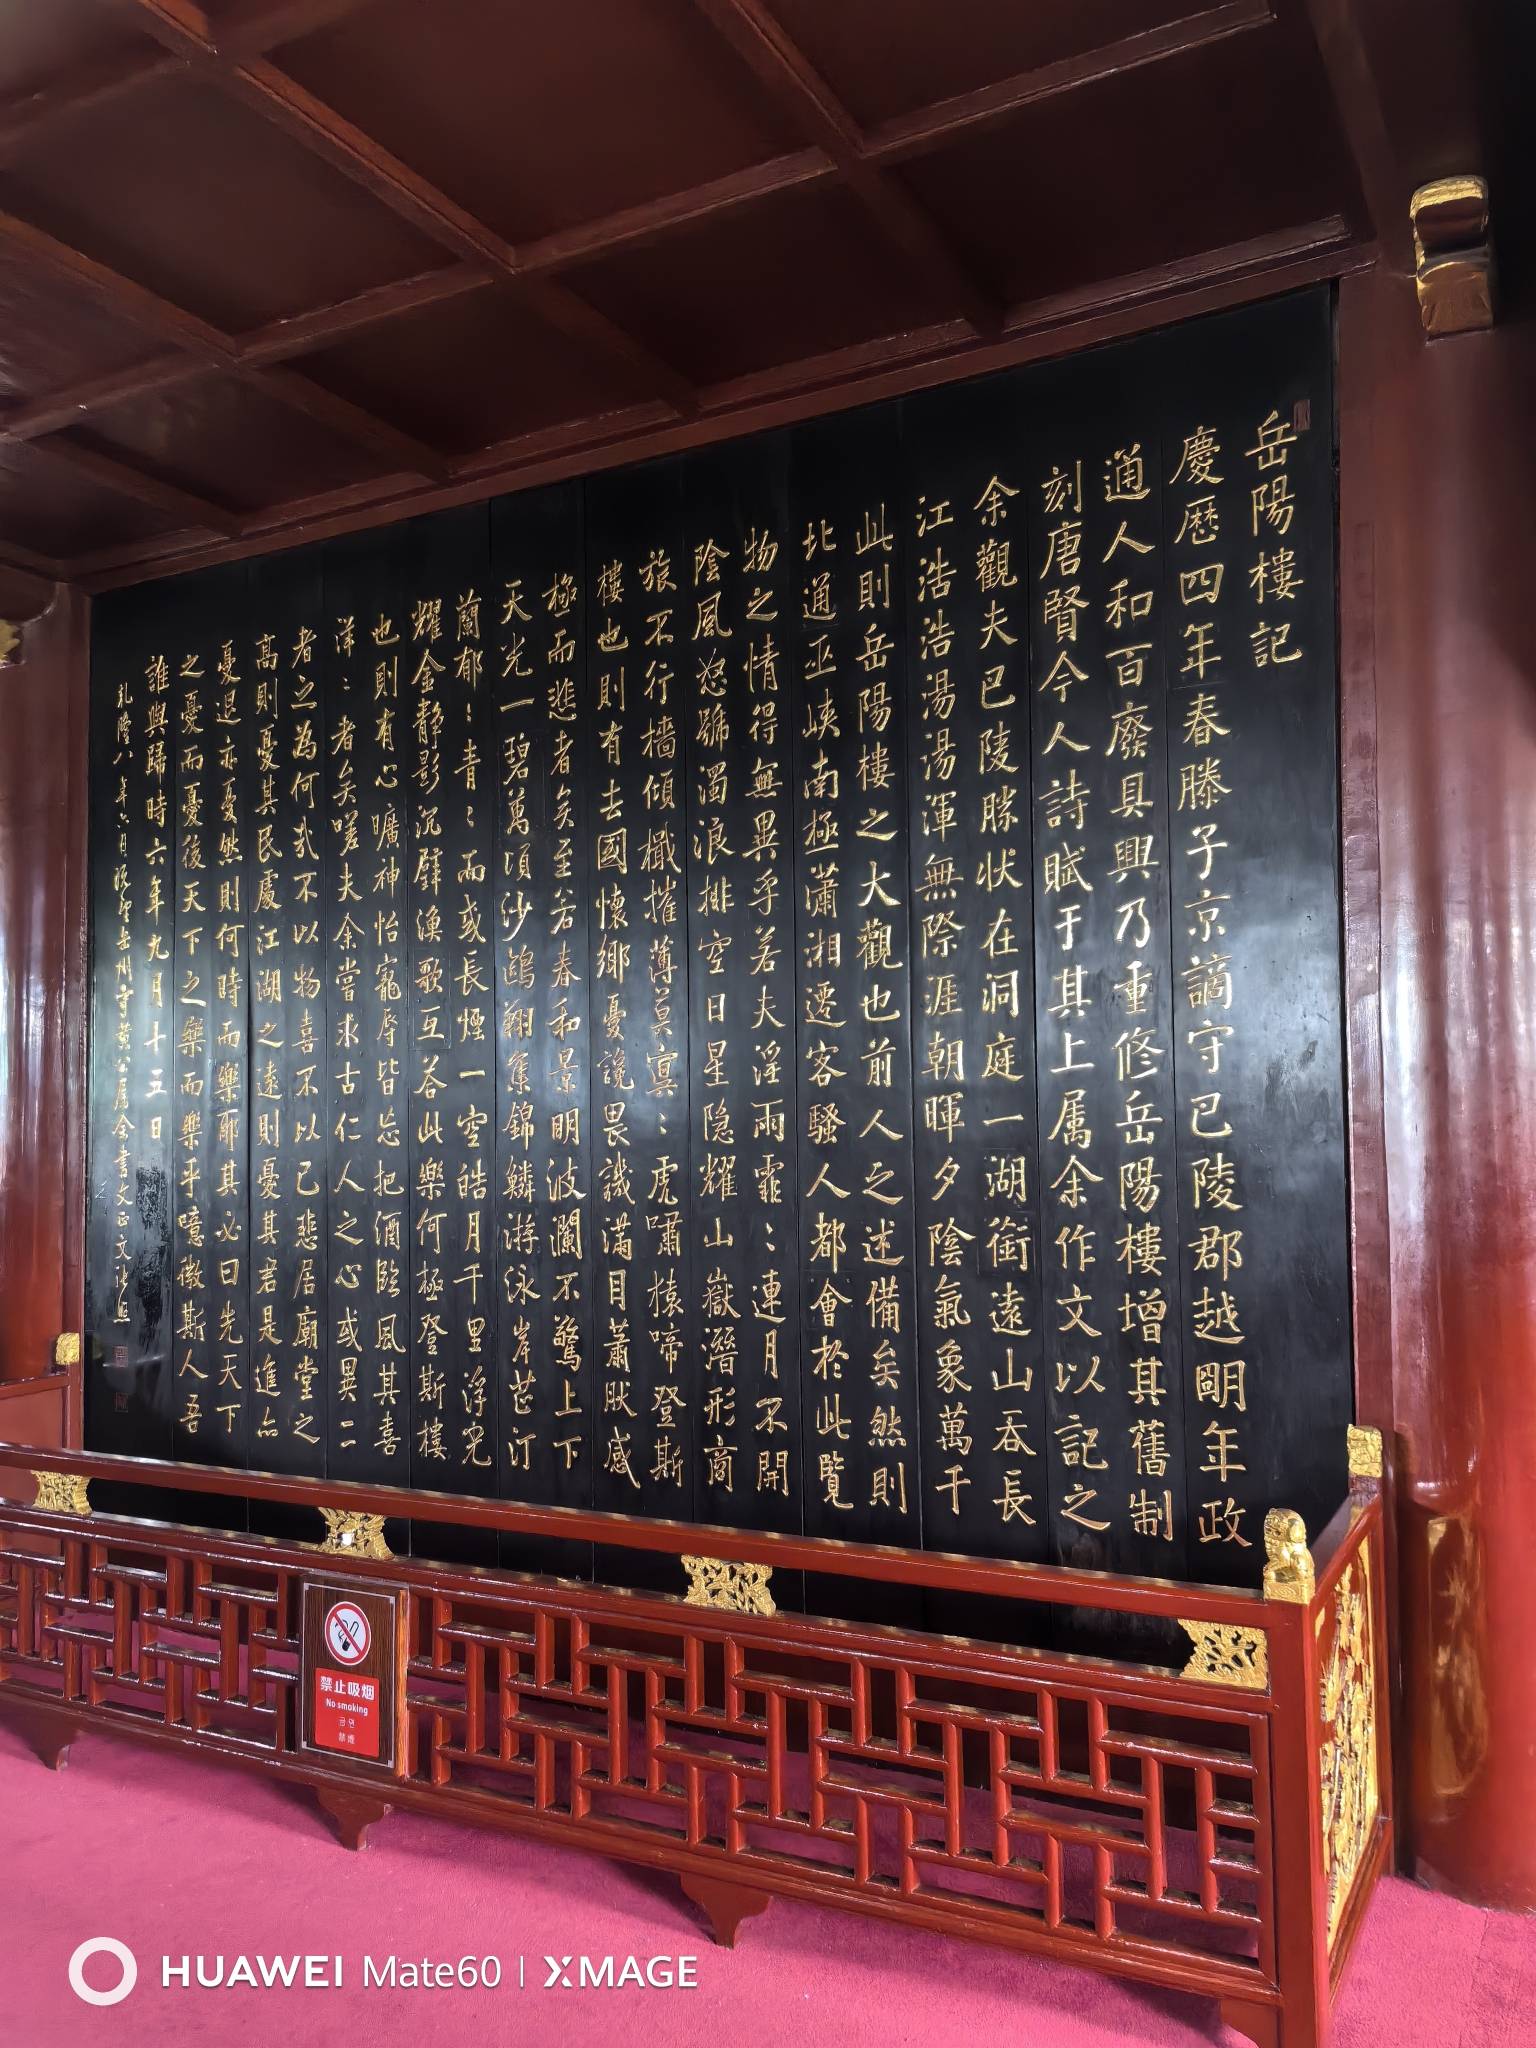 岳陽樓記
慶歷四年春滕子京謫守巴陵郡越朙年政
通人和百廢具興乃重修岳陽樓增其舊制
刻唐賢今人詩賦于其上属余作文以記之
余觀夫巴陵勝状在洞庭一湖銜遠山吞長
江浩浩湯湯渾無際涯朝暉夕陰氣象萬千
此則岳陽樓之大觀也前人之述備矣然則
北通巫峽南極瀟湘遷客騷人都會於此覽
物之情得無異乎若夫淫雨霏〻連月不開
陰風怒號濁浪排空日星隐耀山嶽潛形商
旅不行檣傾檝摧薄莫冥〻虎嘯猿啼登斯
樓也則有去國懷鄉憂讒畏譏滿目蕭然感
極而悲者矣至若春和景明波瀾不驚上下
天光一碧萬頃沙鷗翔集錦鱗游泳岸芷汀
蘭郁〻青〻而或長煙一空皓月千里浮光
耀金静影沉璧漁歌互荅此樂何極登斯樓
也則有心曠神怡寵辱皆忘把酒臨風其喜
洋〻者矣嗟夫余嘗求古仁人之心或異二
者之為何哉不以物喜不以己悲居廟堂之
高則憂其民處江湖之遠則憂其君是進亦
憂退亦憂然則何時而樂耶其必曰先天下
之憂而憂後天下之樂而樂乎噫微斯人吾
誰與歸時六年九月十五日
乾隆八年六月既望岳州守黄公属余書文正文張照
禁止吸烟
No smoking
금연
禁煙
HUAWEI Mate60 | XMAGE